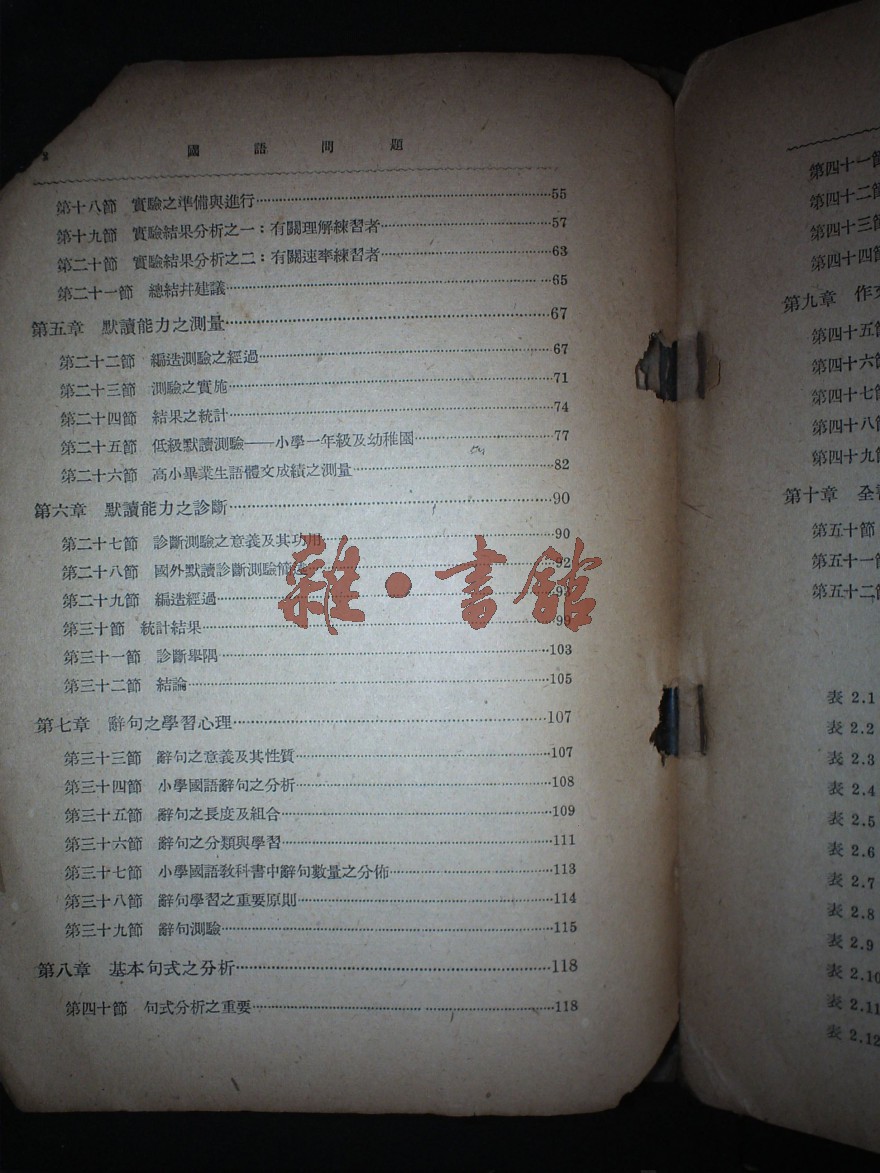 國語問題
第十八節 實驗之準備與進行……55
第十九節 實驗結果分析之一：有關理解練習者……57
第二十節 實驗結果分析之二：有關速率練習者……63
第二十一節 總結幷建議……65
第五章 默讀能力之測量……67
第二十二節 編造測驗之經過……67
第二十三節 測驗之實施……71
第二十四節 結果之統計……74
第二十五節 低級默讀測驗——小學一年級及幼稚園……77
第二十六節 高小畢業生語體文成績之測量……82
第六章 默讀能力之診斷……90
第二十七節 診斷測驗之意義及其功用……90
第二十八節 國外默讀診斷測驗……92
第二十九節 編造經過……
第三十節 統計結果……99
第三十一節 診斷舉隅……103
第三十二節 結論……105
第七章 辭句之學習心理……107
第三十三節 辭句之意義及其性質……107
第三十四節 小學國語辭句之分析……108
第三十五節 辭句之長度及組合……109
第三十六節 辭句之分類與學習……111
第三十七節 小學國語教科書中辭句數量之分佈……113
第三十八節 辭句學習之重要原則……114
第三十九節 辭句測驗……115
第八章 基本句式之分析……118
第四十節 句式分析之重要……118
雜·書館
第四十一節
第四十二節
第四十三節
第四十四節
第九章 作文
第四十五節
第四十六節
第四十七節
第四十八節
第四十九節
第十章 全
第五十節
第五十一節
第五十二節
表 2.1
表 2.2
表 2.3
表 2.4
表 2.5
表 2.6
表 2.7
表 2.8
表 2.9
表 2.10
表 2.11
表 2.12